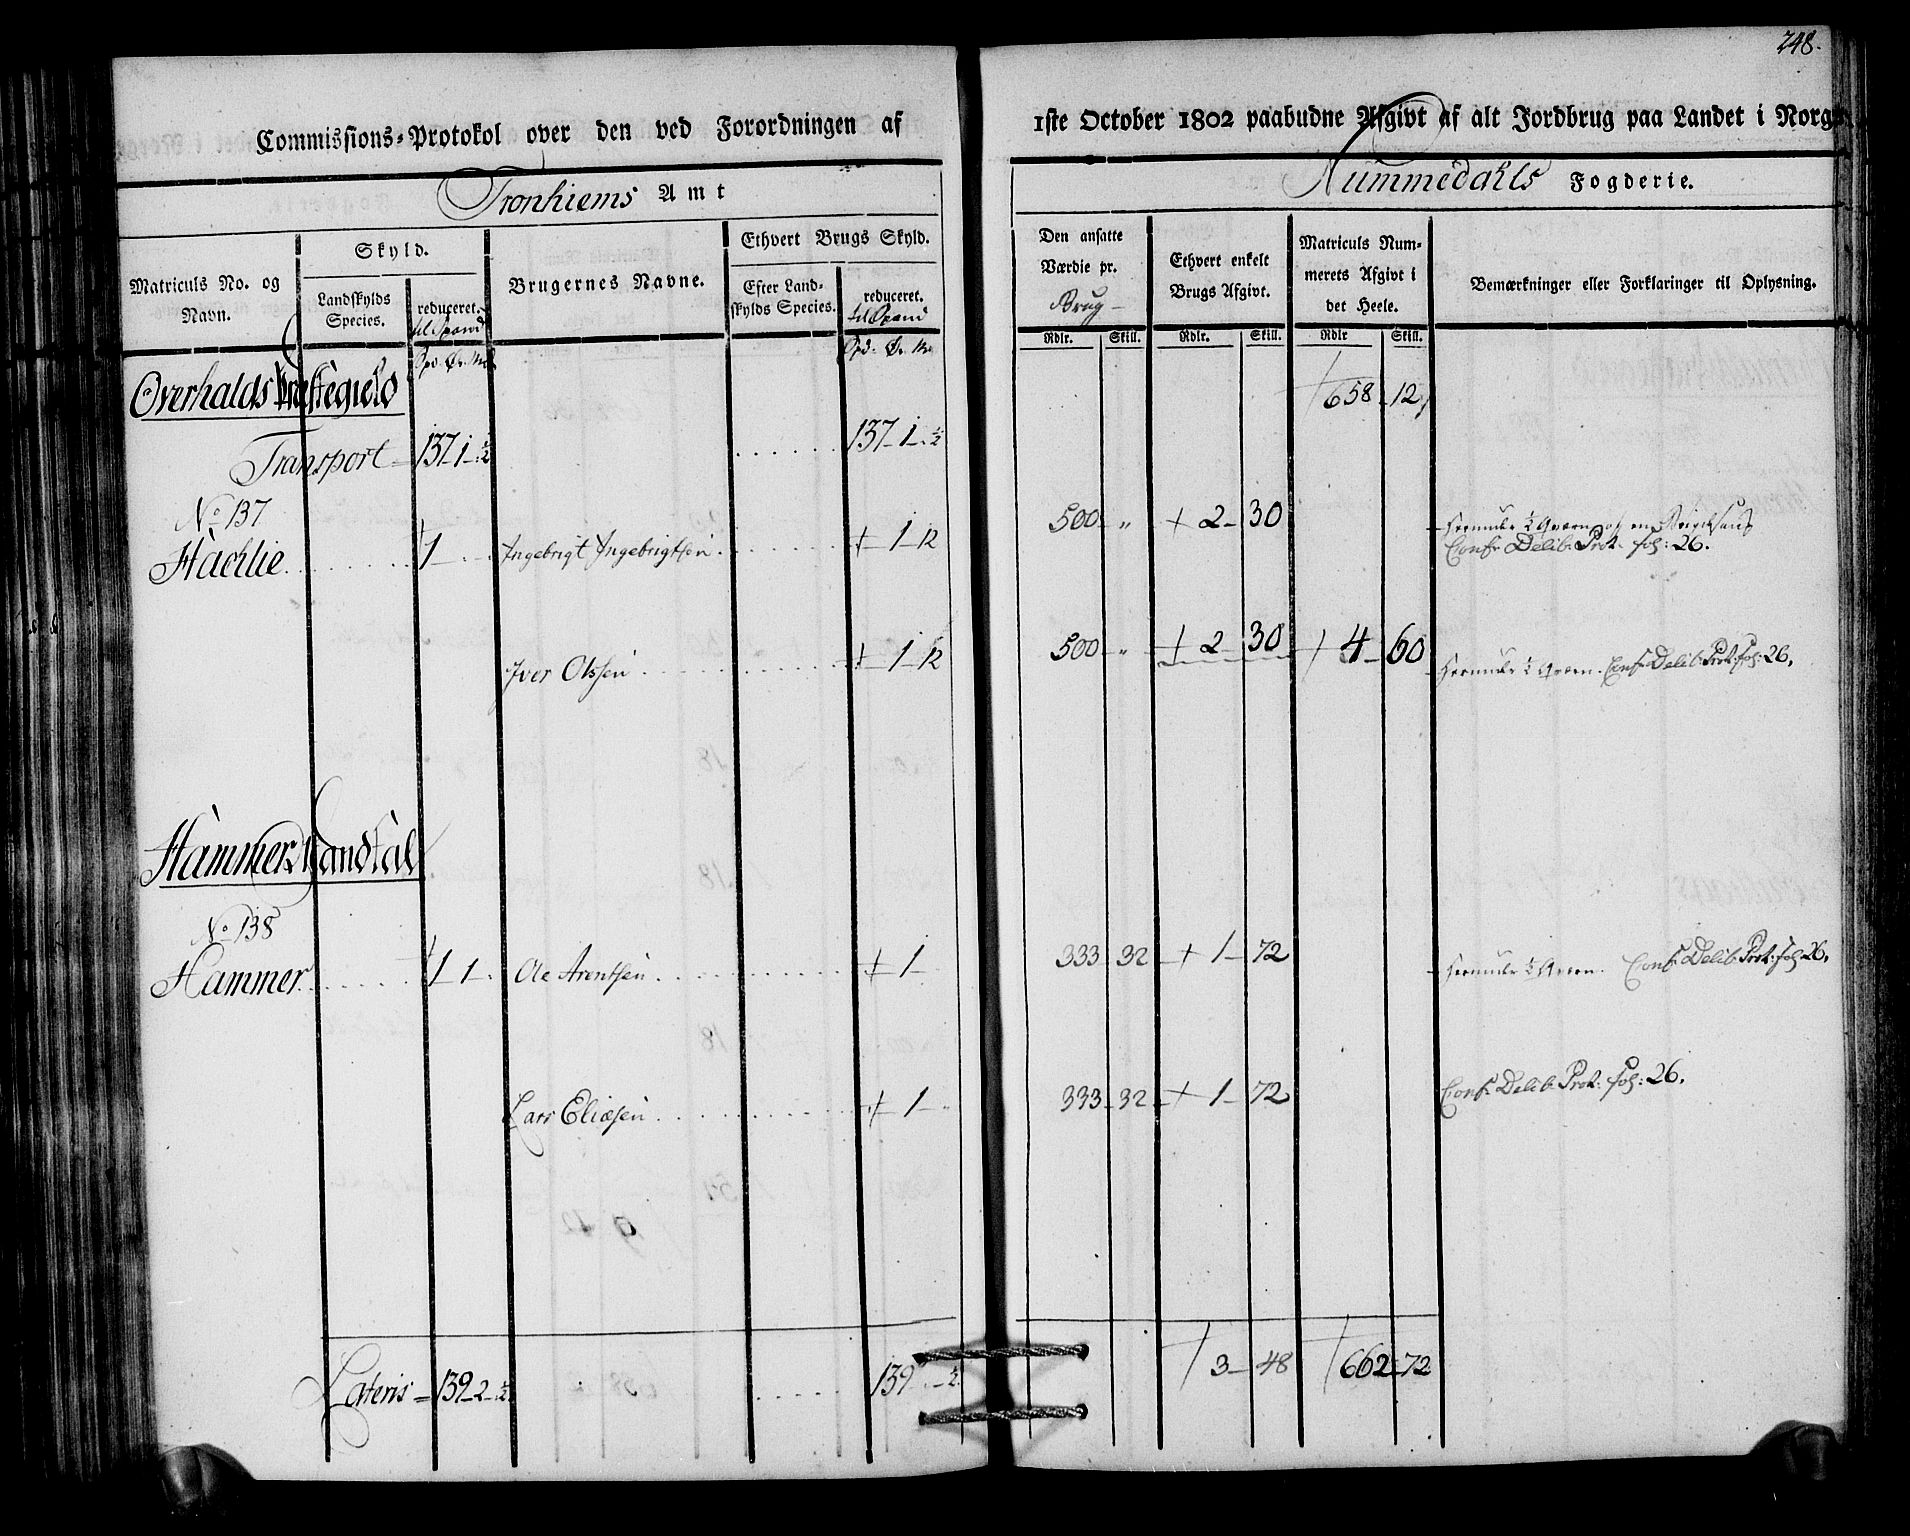 248.
Commissions-Protokol over den ved Forordningen af 1ste October 1802 paabudne Afgivt af alt Jordbrug paa Landet i Norge
Tronhiems Amt
Nummedahls Fogderie.
Matriculs No. og Navn.
Skyld.
Landskylds Species.
reduceret. til Spand
Brugernes Navne.
Ethvert Brugs Skyld.
Efter Landskylds Species.
reduceret. til Spand
Den ansatte Værdie pr. Brug
Ethvert enkelt Brugs Afgivt.
Matriculs Nummerets Afgivt i det Heele.
Bemærkninger eller Forklaringer til Oplysning.
Rdlr. Skill. Rdlr. Skill. Rdlr Skill.
Overhalds Præstegield 658 12
Transport 137 1 ½ 137 1 ½
No 137
Hachlie 1 Ingebrigt Ingebrigtsen 1 12 500 " 2 30
Conf. Delib. Prot. fol: 26.
Iver Olssen 1 12 500 " 2 30 4 60 Conf. Delib. Prot. fol: 26.
Hammer Mandtal
No 138
Hammer 1 1 Ole Arentsen 1 333 32 1 72 Conf. Delib. Prot. fol: 26.
Lars Eliæsen 1 333 32 1 72 Conf. Delib. Prot: fol: 26.
3 48 662 72
Lateris 139 2 ½ 139 ½